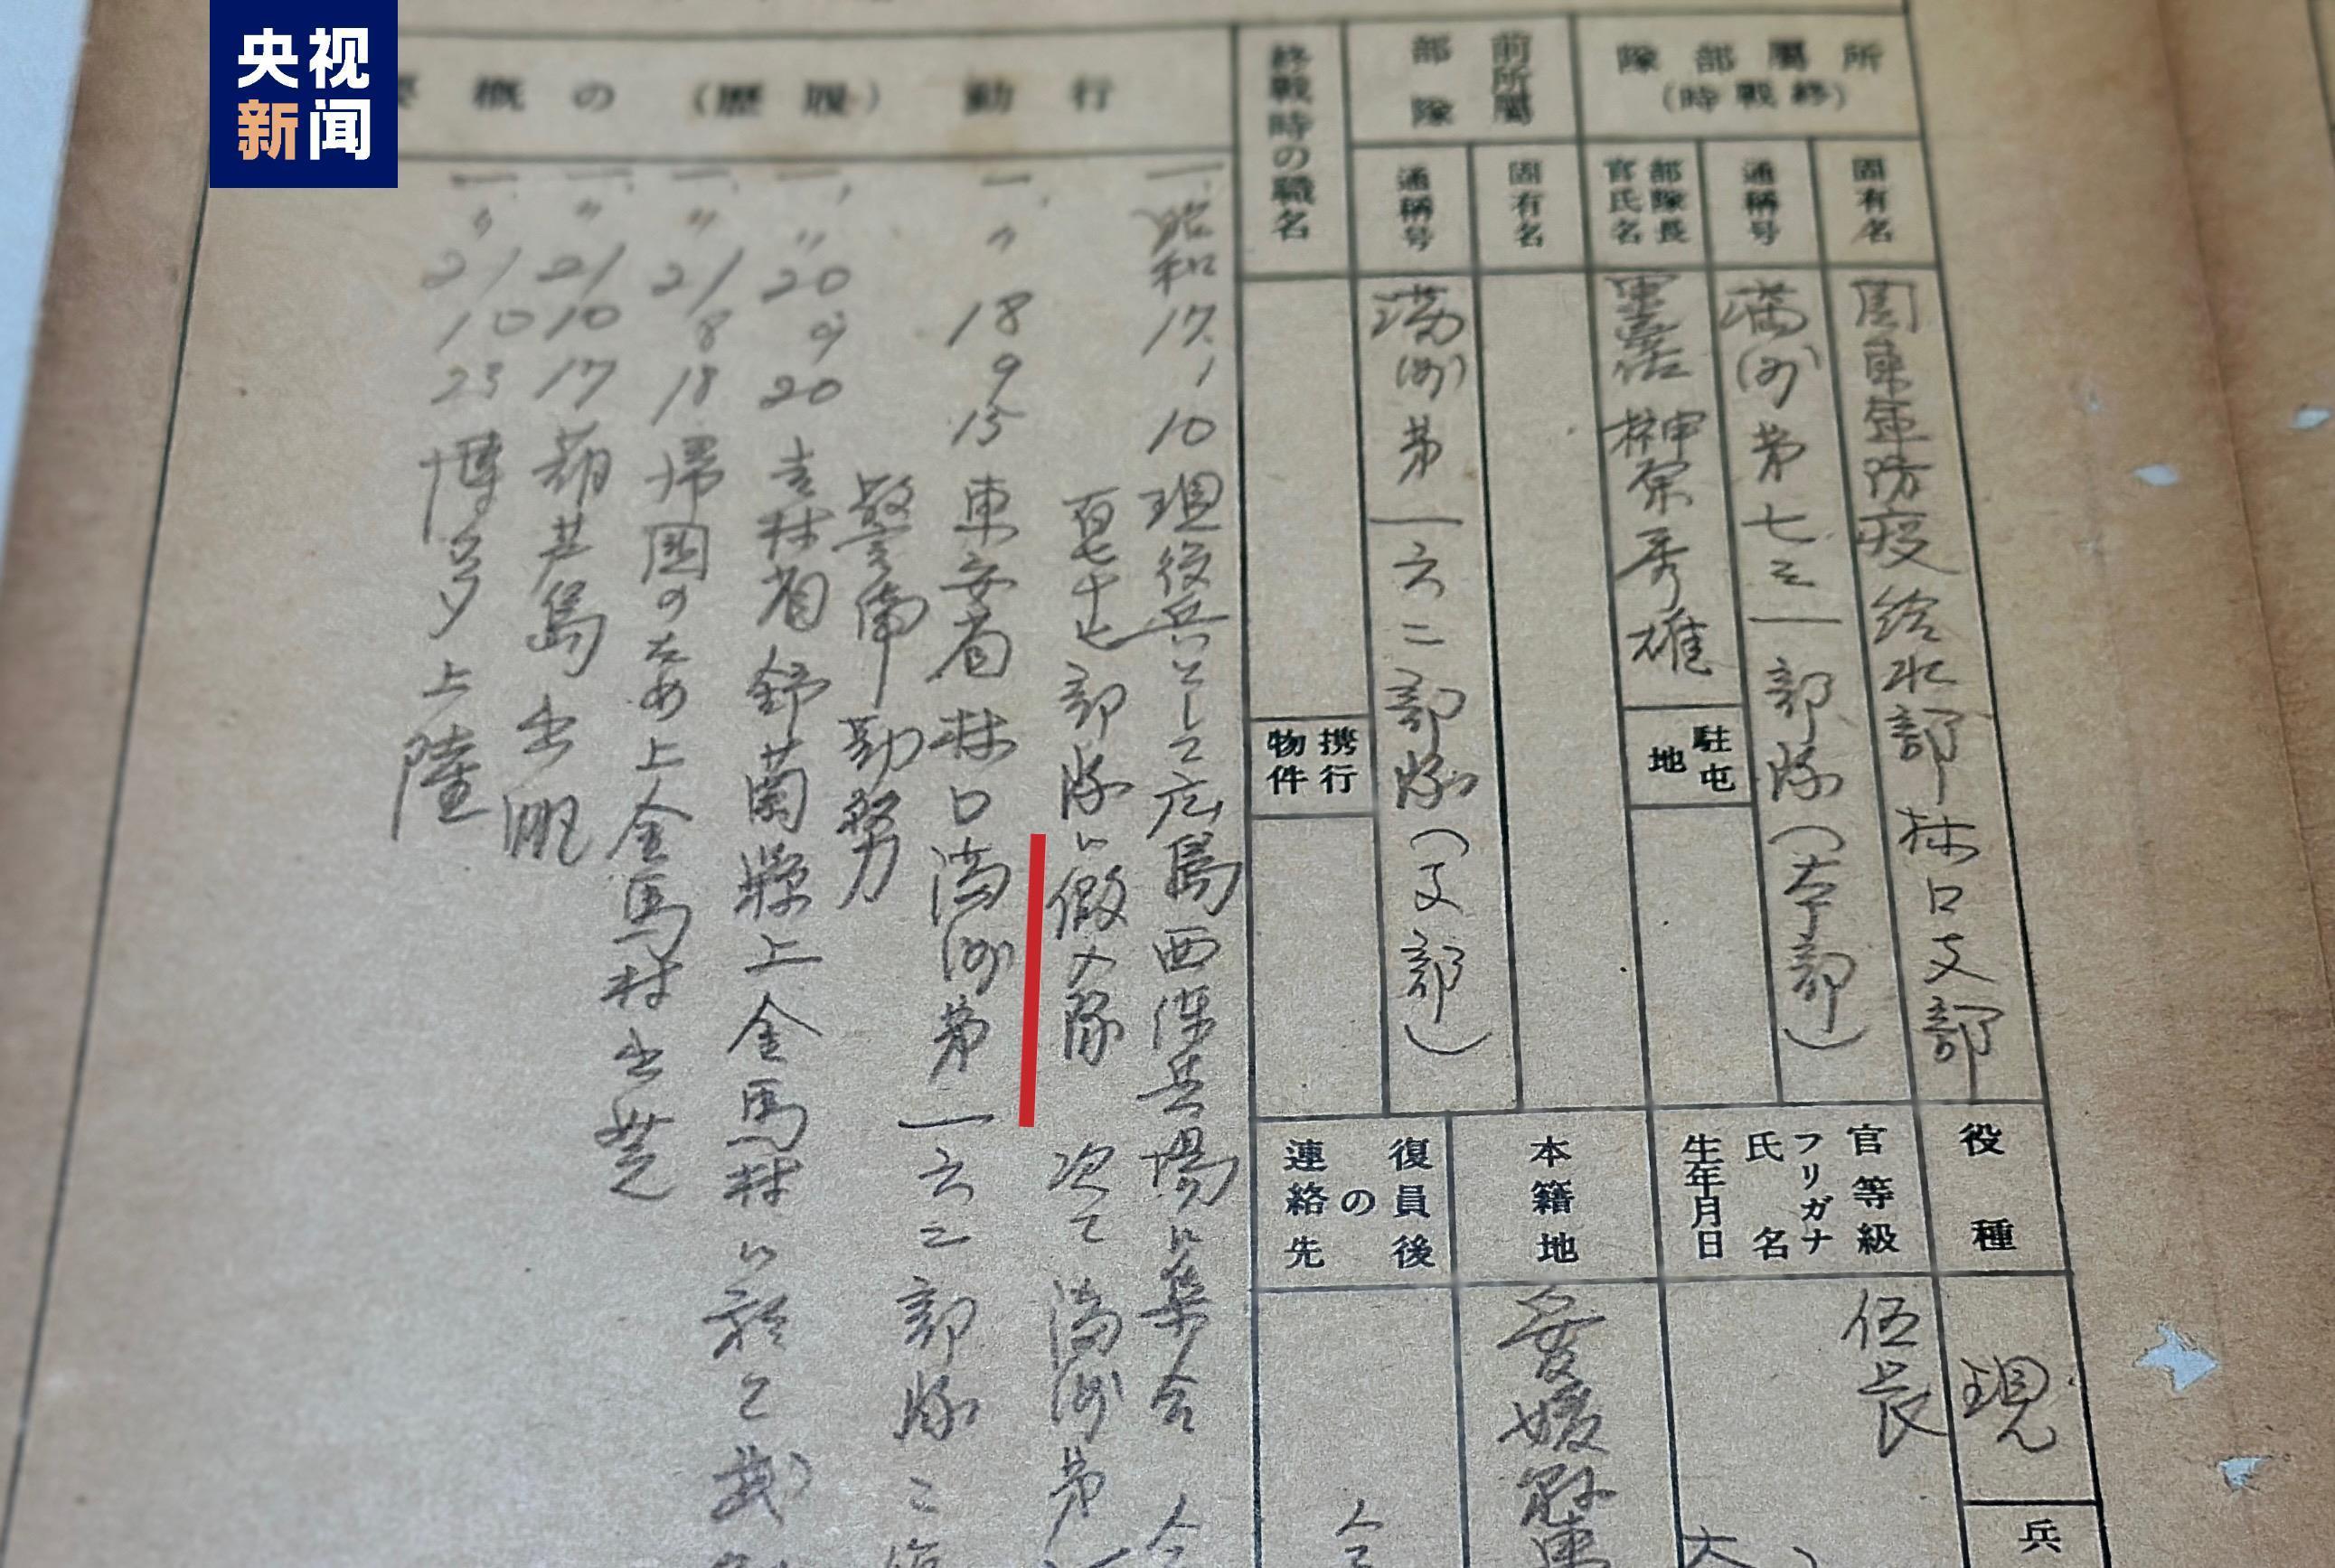 央视
新闻
所屬部隊
(終戰時)
固有名
關東軍防疫給水部林口支部
通稱号
満洲第七三一部隊(本部)
部隊長
官氏名
榊原秀雄
駐屯
地
前所屬
部隊
固有名
通稱号
満洲第一六二部隊(支部)
終戰時の職名
携行
物件
役種
現
兵
官等級
伍長
フリガナ
氏名
生年月日
本籍地
愛媛縣
復員後
の
連絡先
行動(履歴)の概要
一、昭和17.1.10現役兵として広島西練兵場に集合
部隊に仮入隊 次て満洲第
一、〃18 9 15東安省林口満洲第一六二部隊ニ
警備勤努
一、〃20 9 20吉林省舒蘭縣上金馬村に於て武
一、〃21 8 18帰国のため上金馬村出発
一、〃21 10 17葫芦島出帆
一、〃21 10 23博多上陸